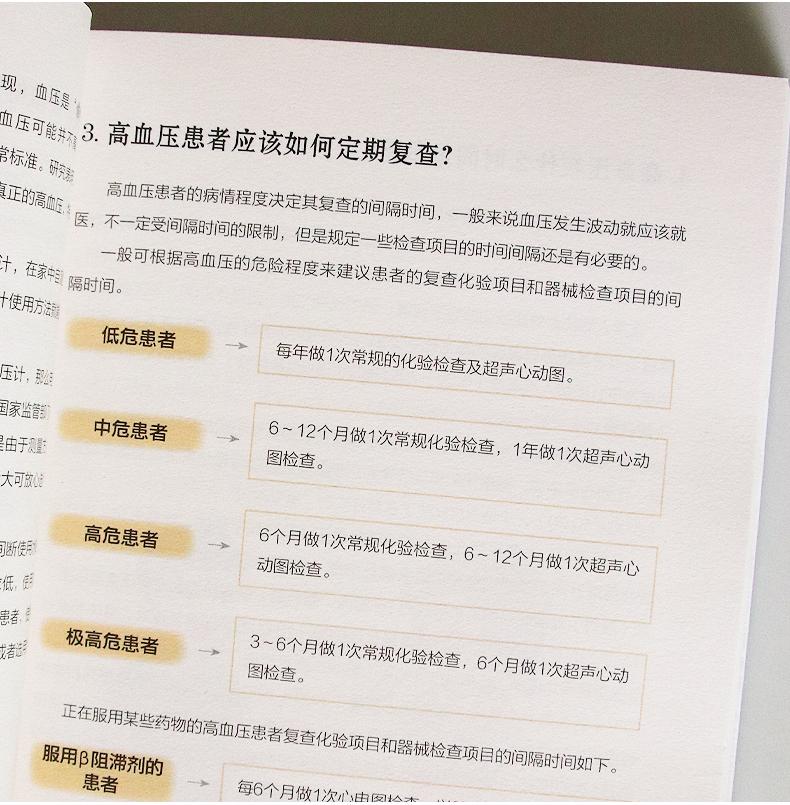 现，血压是
血压可能并不
常标准。研究表
真正的高血压，
计，在家中自
计使用方法
压计，那么
国家监管部
是由于测量
大可放心
间断使用
低，使用
患者，
或者选用
3. 高血压患者应该如何定期复查？
高血压患者的病情程度决定其复查的间隔时间，一般来说血压发生波动就应该就
医，不一定受间隔时间的限制，但是规定一些检查项目的时间间隔还是有必要的。
一般可根据高血压的危险程度来建议患者的复查化验项目和器械检查项目的间
隔时间。
低危患者 → 每年做1次常规的化验检查及超声心动图。
中危患者 → 6～12个月做1次常规化验检查，1年做1次超声心动
图检查。
高危患者 → 6个月做1次常规化验检查，6～12个月做1次超声心
动图检查。
极高危患者 → 3～6个月做1次常规化验检查，6个月做1次超声心动
图检查。
正在服用某些药物的高血压患者复查化验项目和器械检查项目的间隔时间如下。
服用β阻滞剂的
患者 → 每6个月做1次心电图检查，